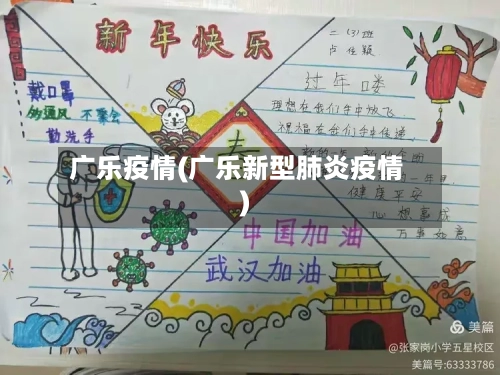 新年快乐
二(3)班
卢佳颖
过年喽
戴口罩
多通风 不聚会
勤洗手
理想在我们手中放飞
祝福在我们手中传递
春
广乐疫情(广乐新型肺炎疫情
)
健康平安
心想事成
万事如意
中国加油
武汉加油
美篇
@张家岗小学五星校区
美篇号:63333786